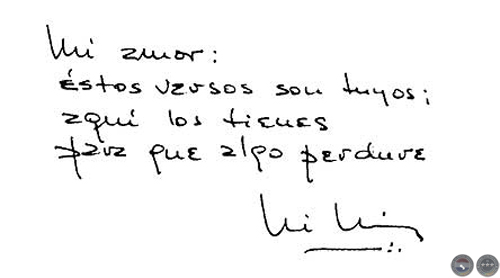 Mi amor:
éstos versos son tuyos;
aquí los tienes
para que algo perdure